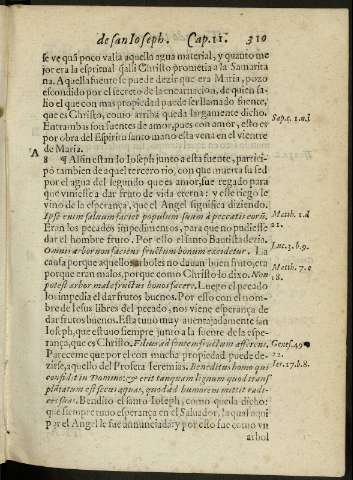 de san Ioseph. Cap. 11. 310
se ve quã poco valia aquella agua material, y quanto me
jor era la espritual qẽ Christo prometia a la Samarita
na. A aquella fuente se puede dezir que era Maria, pozo
escondido por el secreto de la encarnacion, de quien sa-
lio el que con mas propiedad puede ser llamado fuente,
que es Christo, como arriba queda largamente dicho.
Entrambas son fuentes de amor, pues con amor, esto es
por obra del Espiritu santo mano esta vena en el vientre
de Maria.
A
8 ¶ Assi estan Io Ioseph junto a esta fuente, partici-
pò tambien de aquel tercero rio, con que matera su sed
por el agua del segundo que es amor, fue regado para
que viniesse a dar fruto de vida eterna: y esse riego le
vino de la esperança, que el Angel significa diziendo.
Ipse enim saluum faciet populum suum à peccatis eorũ.
Matth. 1. d
21.
Eran los pecados impedimentos, para que no pudiesse
dar el hombre fruto. Por esso el santo Bautista dezia.
Omnis arbor non faciens fructum bonum excidetur. La
Luc. 3. b. 9.
causa porque aquellos arboles no dauan buen fruto era
porque eran malos, porque como Christo lo dixo. Non
Matth. 7. c
18.
potest arbor mala fructus bonos facere. Luego el pecado
los impedia el dar frutos buenos. Por esso con el nom-
bre de Iesus libres del pecado, nos viene esperança de
dar frutos buenos. Esta tuuo muy auentajadamente san
Ioseph, que estuuo siempre junto a la fuente de la espe-
rança, que es Christo.
Genes. 49
22.
Pareceme que por el con mucha propiedad puede de-
zirse, aquello del Profeta Ieremias. Benedictus homo qui
Ier. 17. b. 8.
confidit in Domino: & erit tanquam lignum quod trans
plãtatum est secus aquas, quod ad humorem mittit radi-
ces suas. Bendito el santo Ioseph, como queda dicho:
que siempre tuuo esperança en el Saluador, la qual aqui
por el Angel le fue annunciada: y por esso fue como vn
arbol